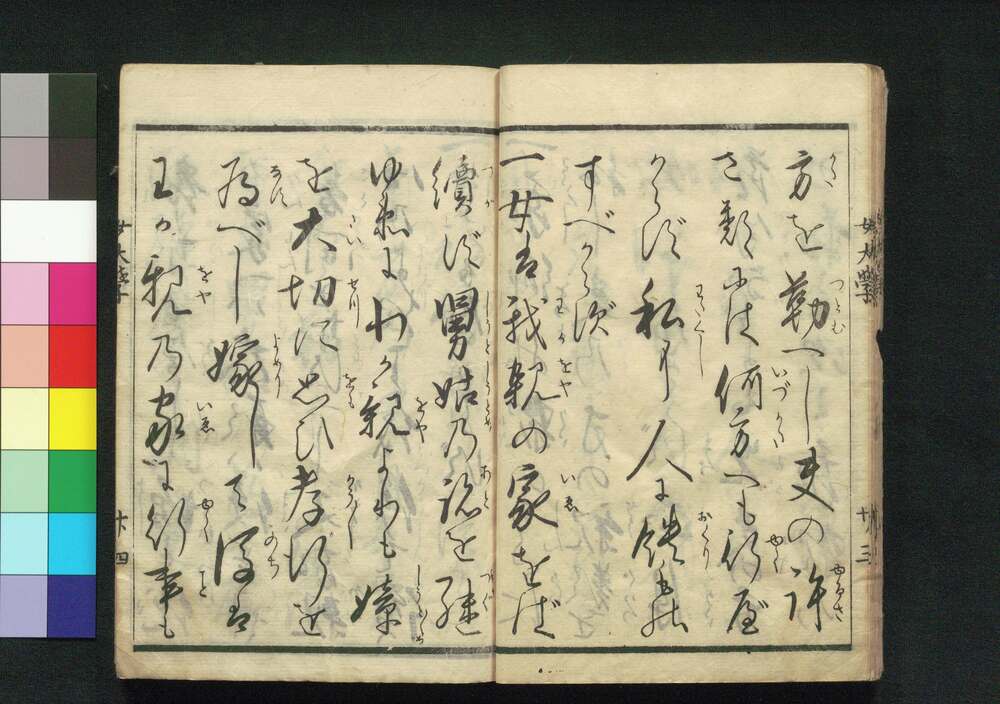 方を勤べし夫の許
さずしては何方へも行べ
からず私に人に饋もの
すべからず
一女は我親の家をば
續ず舅姑の跡を継
ゆゑにわが親よりも嫜
を大切に思ひ孝行を
為べし嫁して後は
わが親の家に行事も
女大學
十三
女大學
十四